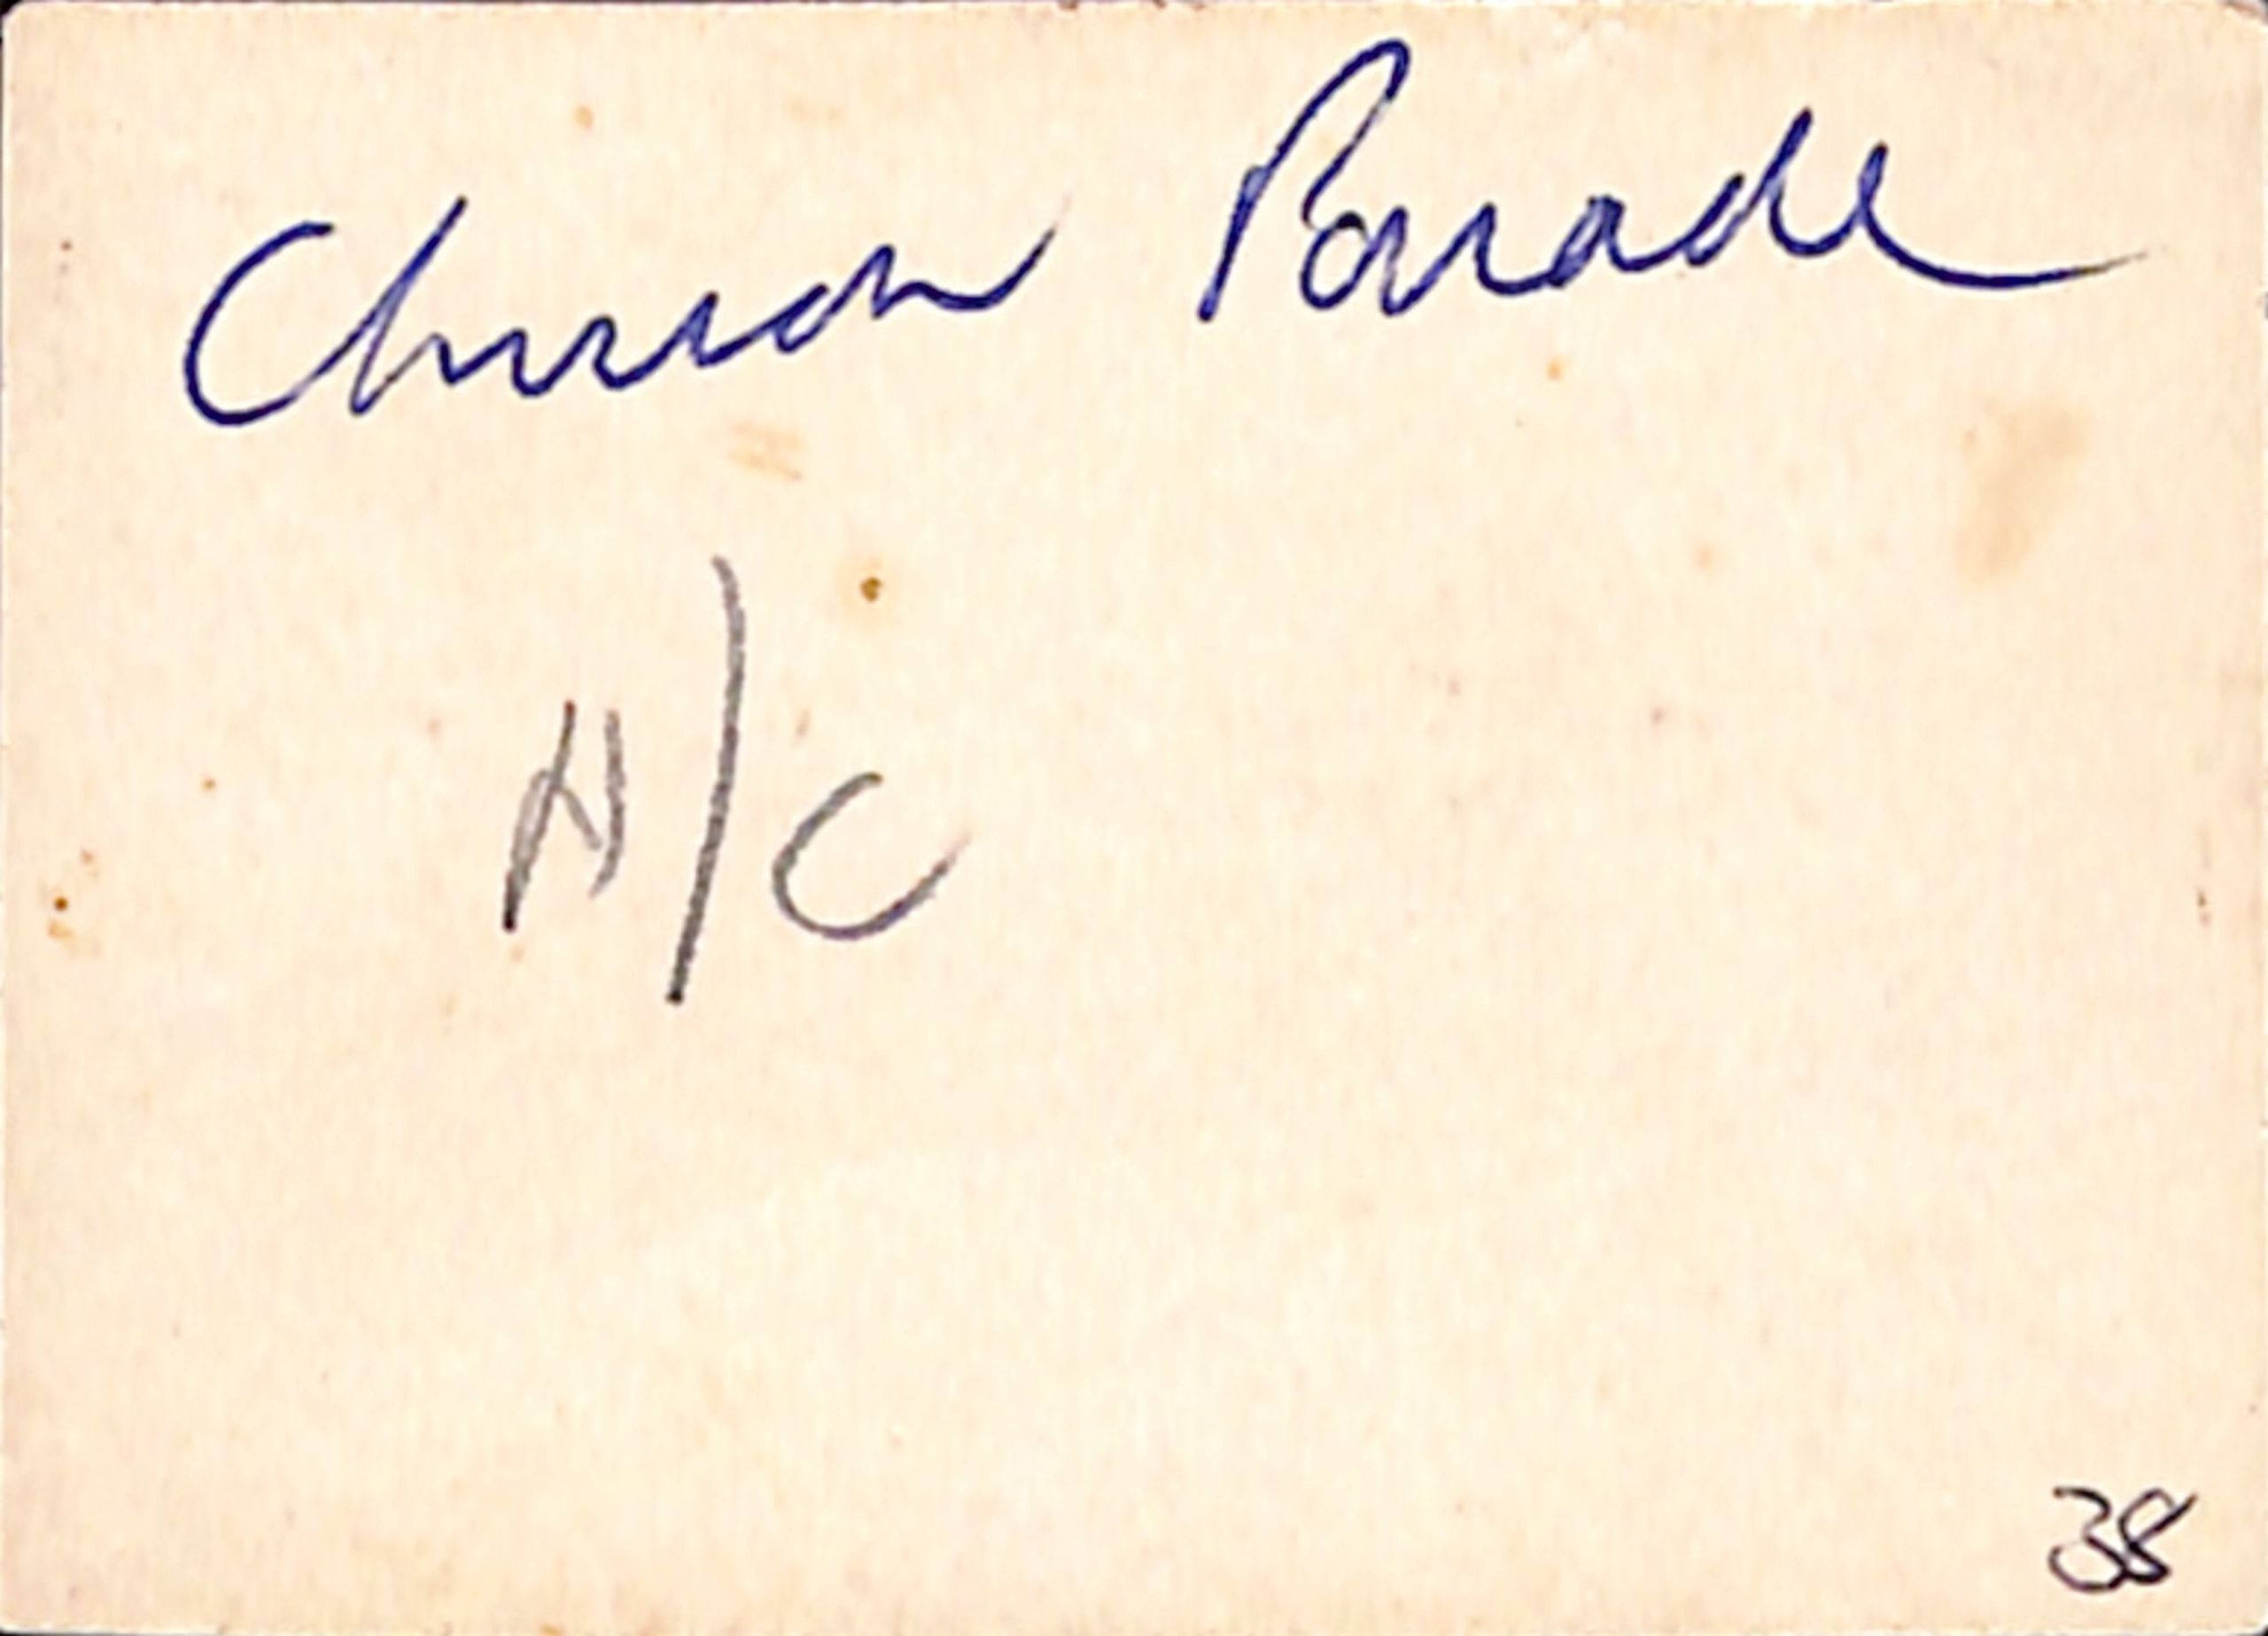 Church Parade
H/C
38